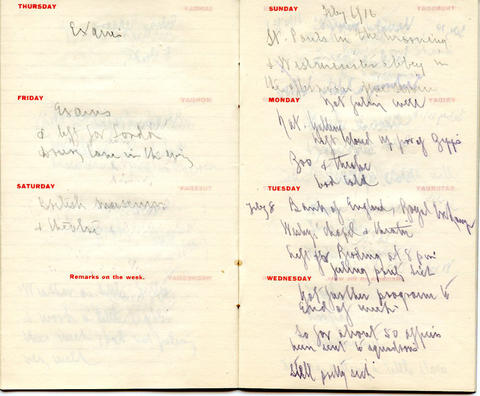 THURSDAY
Exams
FRIDAY
Exams
& left for London
Drury Lane in the evg
SATURDAY
British museum
& theatre
Remarks on the week.
SUNDAY
Feby 6/16
St. Pauls in the morning
& Westminster abbey in
the afternoon
Not feeling well
MONDAY
Nat. Gallery
Zoo & theatre
bad cold
TUESDAY
Feby 8 Bank of England, Royal Exchange
Wesley's chapel & theatre
Left for Reading at 8 pm
Feeling pretty sick
WEDNESDAY
Not further program to
End of week
So far about 50 officers
been sent to squadrons
still pretty sick